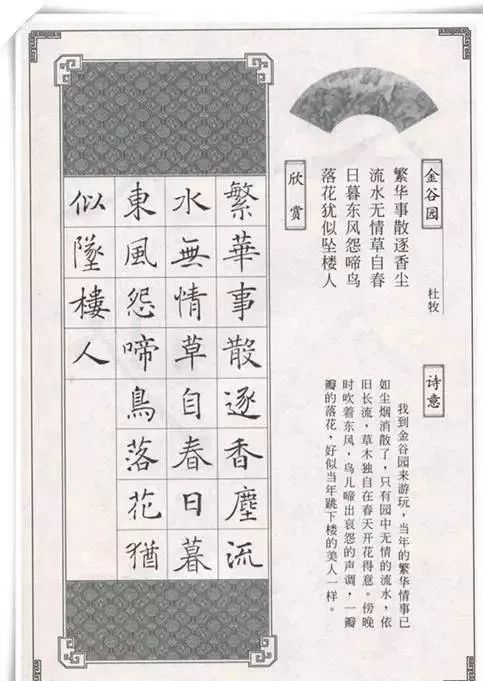 金谷园
杜牧
繁华事散逐香尘
流水无情草自春
日暮东风怨啼鸟
落花犹似坠楼人
诗意
我到金谷园来游玩，当年的繁华情事已
如尘烟消散了，只有园中无情的流水，依
旧长流，草木独自在春天开花得意。傍晚
时吹着东风，鸟儿啼出哀怨的声调，一瓣
瓣的落花，好似当年跳下楼的美人一样。
欣赏
繁華事散逐香塵流
水無情草自春日暮
東風怨啼鳥落花猶
似墜樓人